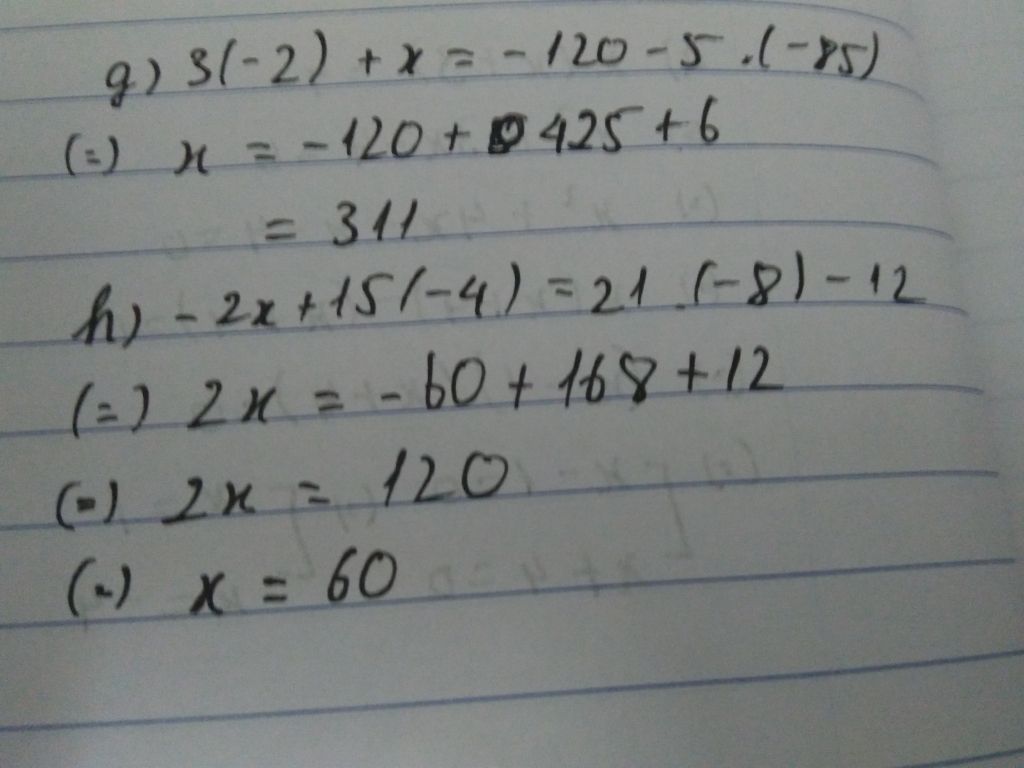 g) 3(-2) + x = -120 - 5 . (-85)
(=) x = -120 + 425 + 6
= 311
h) -2x + 15(-4) = 21 . (-8) - 12
(=) 2x = -60 + 168 + 12
(=) 2x = 120
(=) x = 60